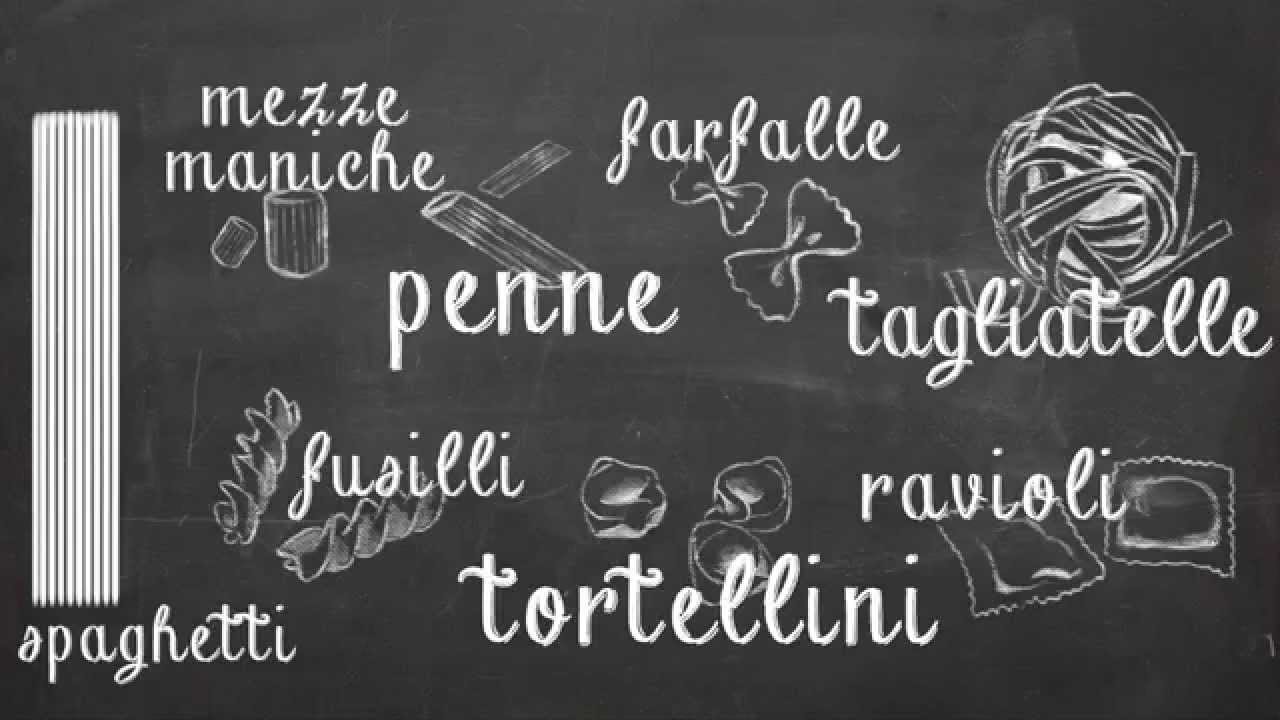 mezze
maniche
farfalle
penne
tagliatelle
fusilli
ravioli
tortellini
spaghetti